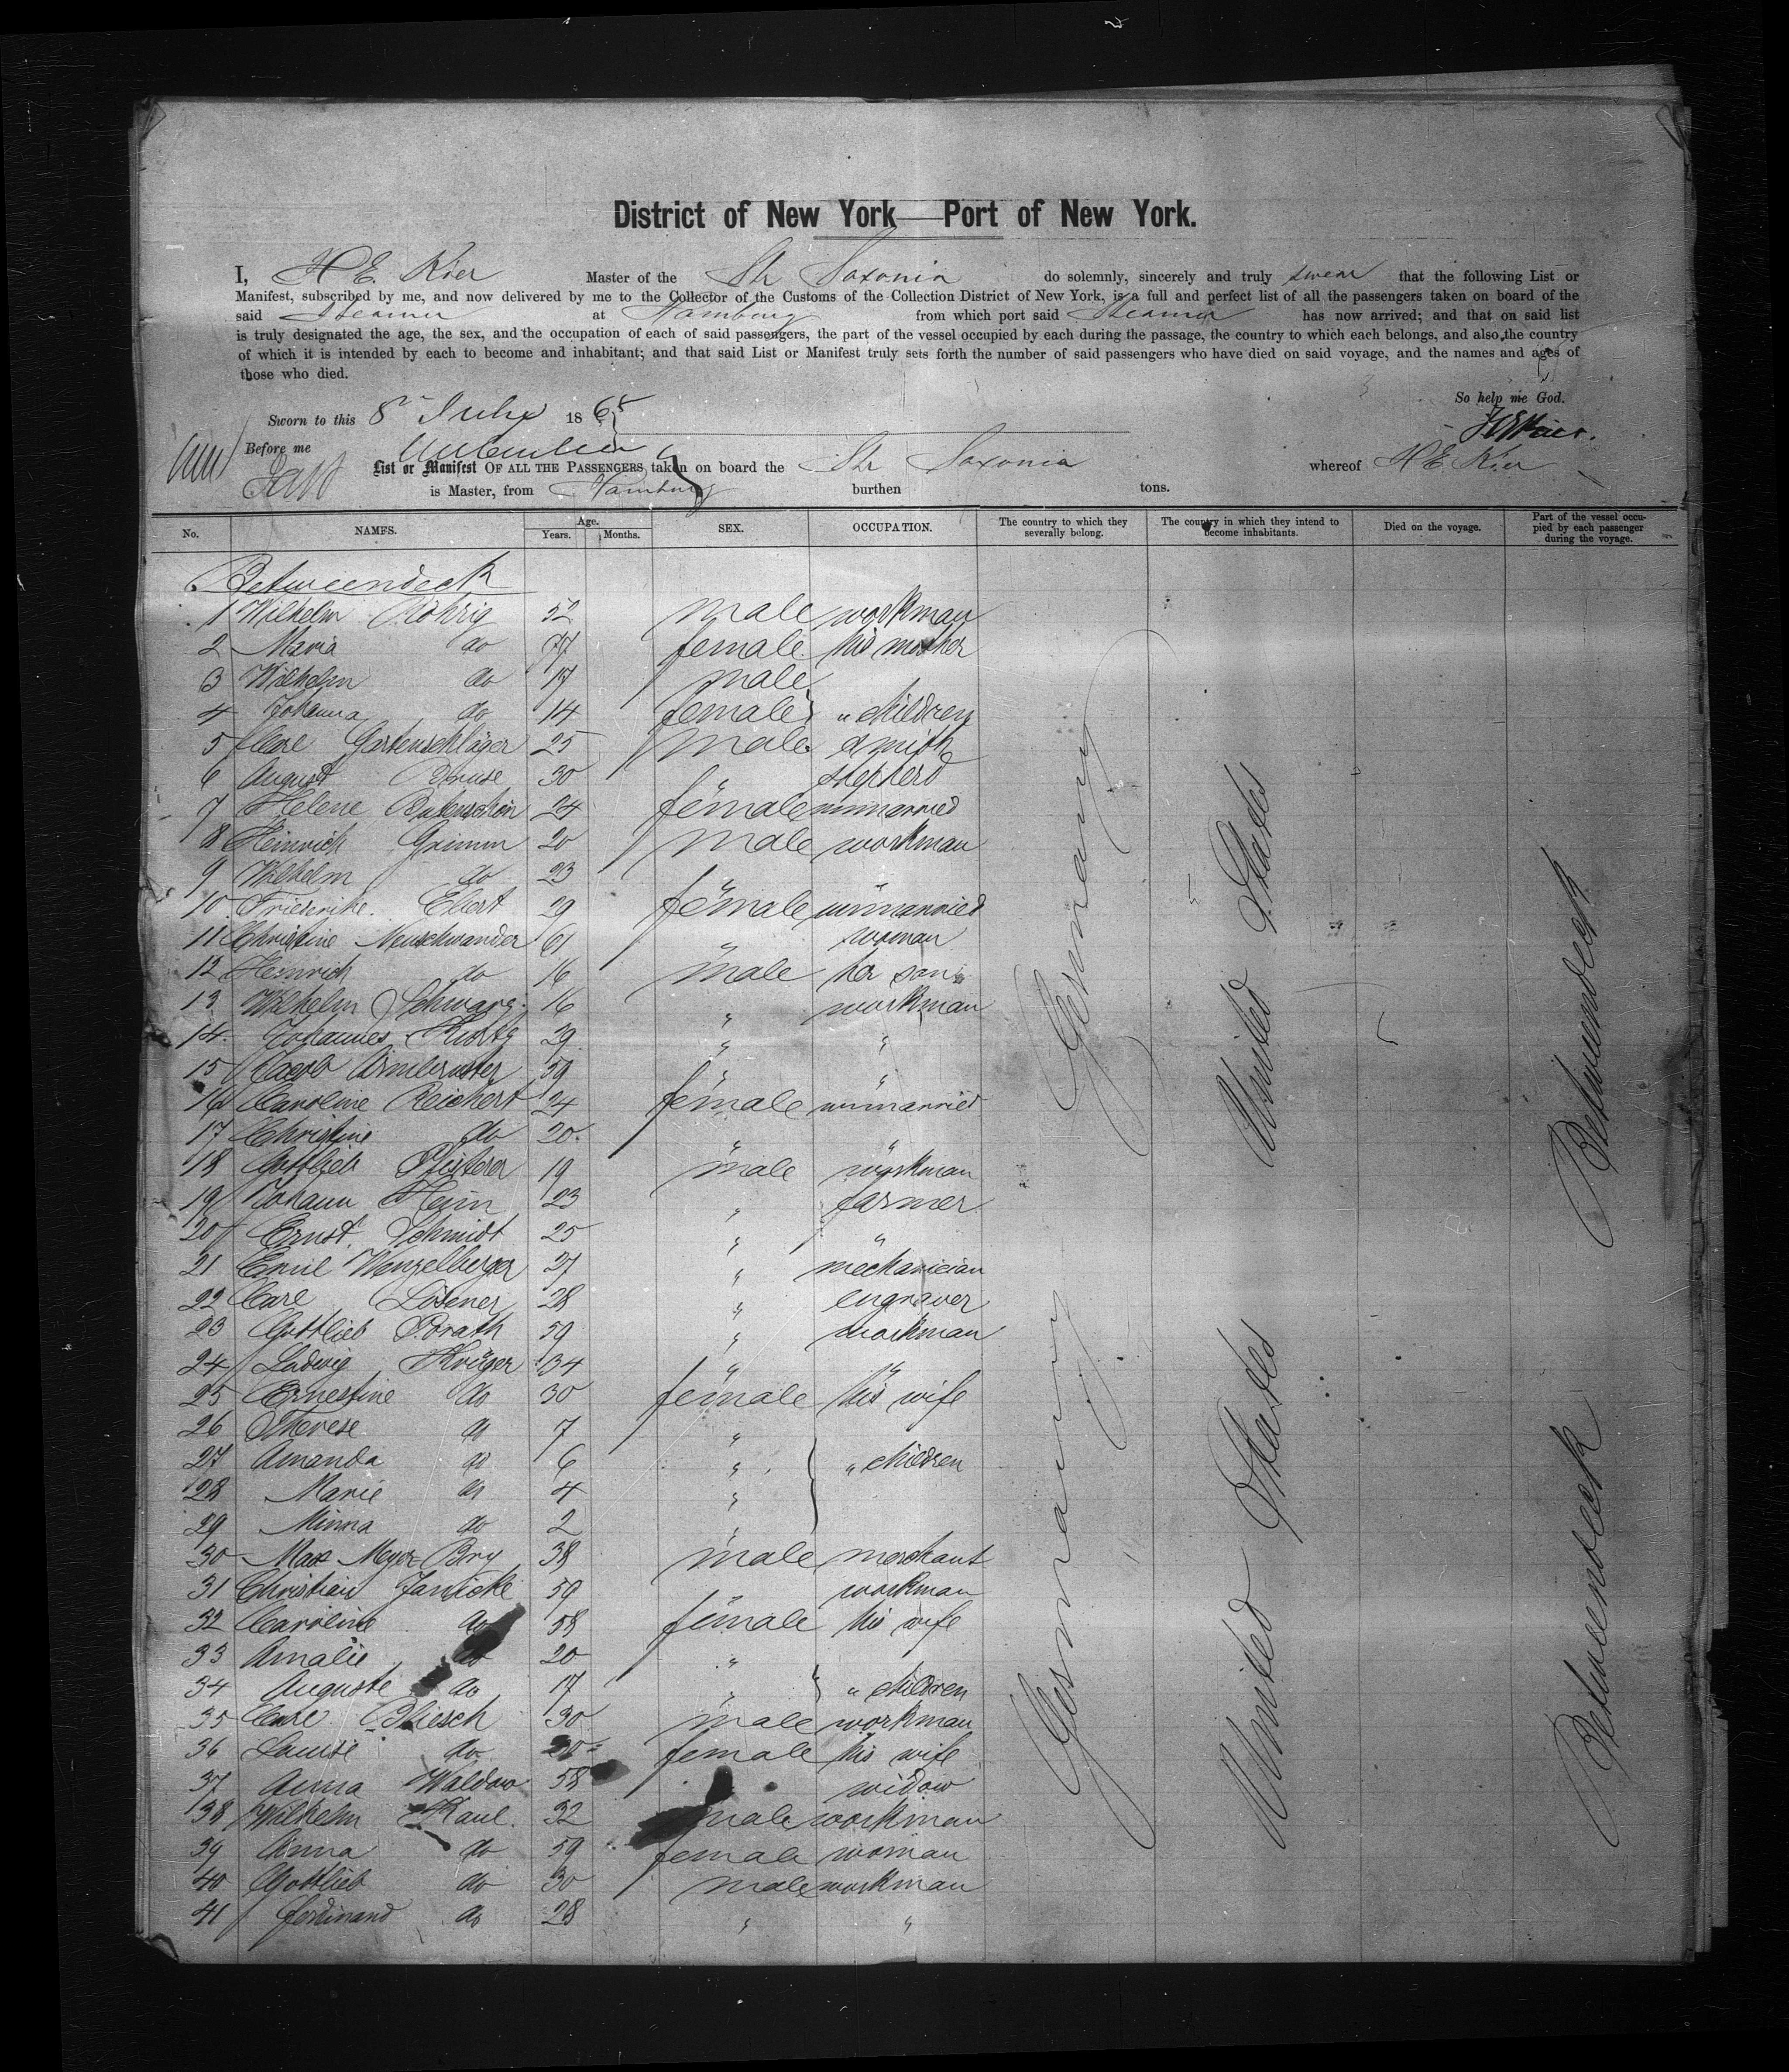 District of New York—Port of New York.
I, H E. Kier Master of the Str Saxonia do solemnly, sincerely and truly swear that the following List or
Manifest, subscribed by me, and now delivered by me to the Collector of the Customs of the Collection District of New York, is a full and perfect list of all the passengers taken on board of the
said Steamer at Hamburg from which port said Steamer has now arrived; and that on said list
is truly designated the age, the sex, and the occupation of each of said passengers, the part of the vessel occupied by each during the passage, the country to which each belongs, and also the country
of which it is intended by each to become and inhabitant; and that said List or Manifest truly sets forth the number of said passengers who have died on said voyage, and the names and ages of
those who died.
So help me God.
Sworn to this 8 July 1865
HEKier.
Before me
List or Manifest OF ALL THE PASSENGERS taken on board the Str Saxonia whereof H E. Kier
is Master, from Hamburg burthen tons.
No. NAMES. Age. Years. Months. SEX. OCCUPATION. The country to which they severally belong. The country in which they intend to become inhabitants. Died on the voyage. Part of the vessel occupied by each passenger during the voyage.
Betweendeck
1 Wilhelm Röhrig 52 male workman
2 Maria do 77 female his mother
3 Wilhelm do 17 male
4 Johanna do 14 female } " children
5 Carl Gartenschläger 25 male smith
6 August Bruse 30 " shepherd
7 Helene Butenschön 24 female unmarried
8 Heinrich Grimm 20 male workman
9 Wilhelm do 23 " "
10 Friederike Ebert 29 female unmarried
11 Christine Neuschwander 61 " woman
12 Heinrich do 16 male her son
13 Wilhelm Schwarz 16 " workman
14 Johannes Kurtz 39 " "
15 Jacob Armbruster 59 " "
16 Caroline Reichert 24 female unmarried
17 Christine do 20 " "
18 Gottlieb Pfisterer 19 male workman
19 Johann Heim 23 " farmer
20 Ernst Schmidt 25 " "
21 Emil Wenzelberger 27 " mechanician
22 Carl Lösener 28 " engraver
23 Gottlieb Porath 59 " workman
24 Ludwig Krüger 34 " "
25 Ernestine do 30 female his wife
26 Therese do 7 "
27 Amanda do 6 " } " children
28 Marie do 4 "
29 Minna do 2 "
30 Max Meyer Bry 38 male merchant
31 Christian Janicke 59 " workman
32 Caroline do 58 female his wife
33 Amalie do 20 "
34 Auguste do 17 " } " children
35 Carl Bliesch 30 male workman
36 Louise do female his wife
37 Anna Waldow 58 widow
38 Wilhelm Kaul 32 male workman
39 Anna do 59 female woman
40 Gottlieb do 30 male workman
41 Ferdinand do 28 " "
Germany
United States
Betweendeck
Germany
United States
Betweendeck